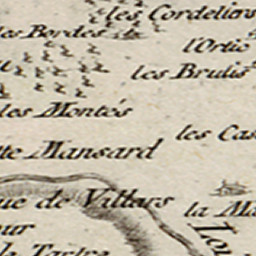 les Cordeliers
les Bordes
l'Ortie
les Brulis
les Montés
les Cas
te Mansard
ue de Villars
la Ma
our
la Tartre